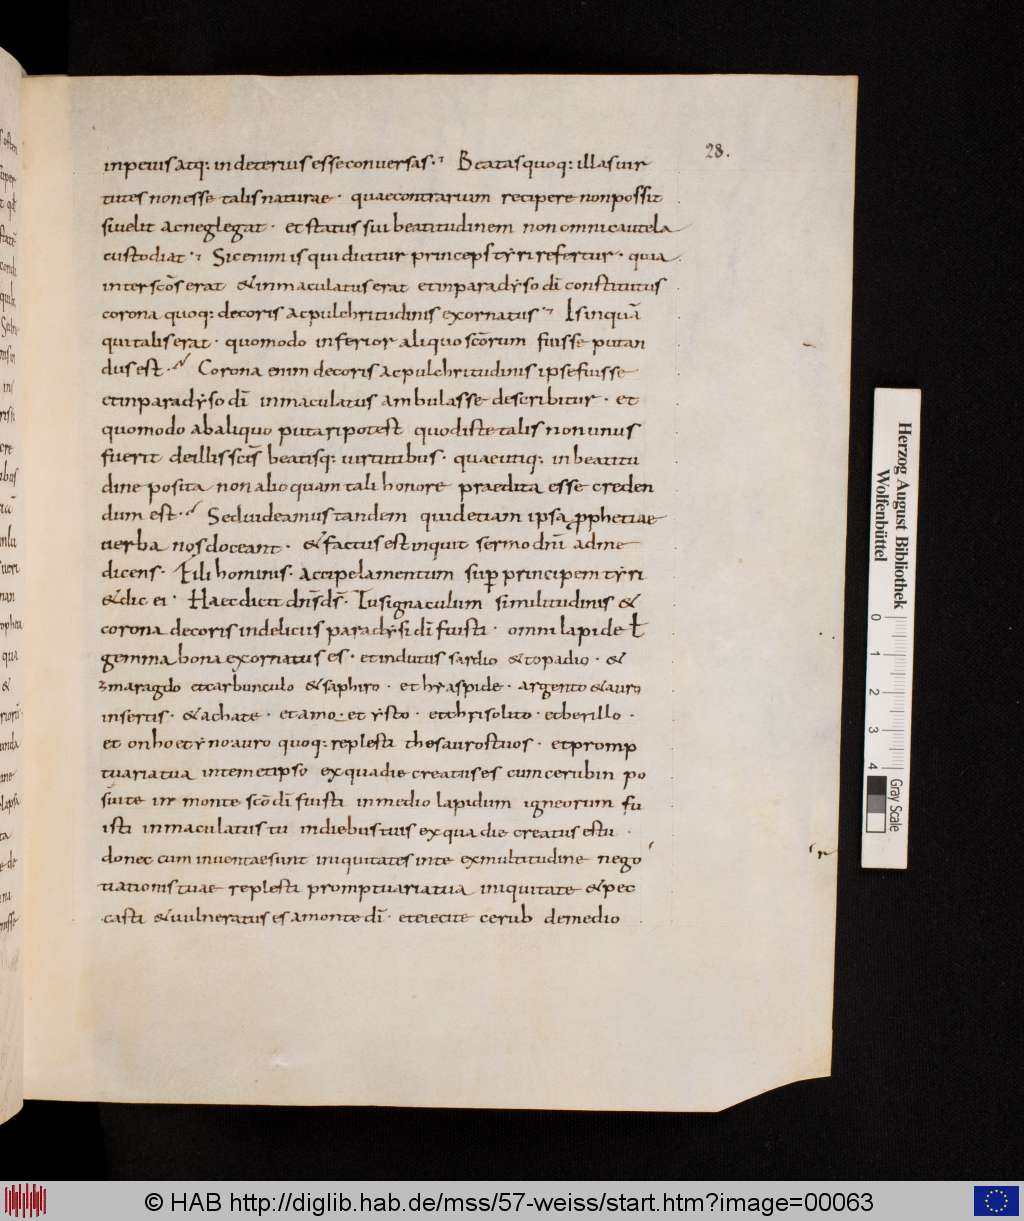 28.
inpeius atq: indeterius esse conuersas. Beatas quoq: illas uir
tutes non esse talis naturae · quae contrarium recipere non possit
si uelit ac neglegat · et status sui beatitudinem non omni cautela
custodiat · Sic enim is qui dicitur princeps tẏri refertur · quia
inter sc̄os erat & inmaculatus erat et in paradẏso dī constitutus
corona quoq: decoris ac pulchritudinis exornatus Is inquā
qui talis erat · quomodo inferior aliquo sc̄orum fuisse putan
dus est · Corona enim decoris ac pulchritudinis ipse fuisse
et in paradẏso dī inmaculatus ambulasse describitur · et
quomodo ab aliquo putari potest quod iste talis non unus
fuerit de illis sc̄is beatisq: uirtutibus · quae utiq: in beatitu
dine posita non alio quam tali honore praedita esse creden
dum est · Sed uideamus tandem quid etiam ipsa ꝓphetiae
uerba nos doceant · & factus est inquit sermo dnī ad me
dicens · Fili hominis · accipe lamentum suꝑ principem tẏri
& dic ei · Haec dicit dn̄s dſ̄ · Tu signaculum similitudinis &
corona decoris in deliciis paradẏsi dī fuisti · omni lapide ł
gemma bona exornatus es · et indutus sardio & topadio · &
zmaragdo et carbunculo & saphiro · et hẏaspide · argento & auro
insertis · & achate · et amo · et ẏsto · et chrisolito · et berillo ·
et onhoetẏno auro quoq: replesti thesauros tuos · et promp
tuaria tua intemetipso ex qua die creatus es cum cerubin po
sui te in monte sc̄o dī fuisti in medio lapidum igneorum fu
isti inmaculatus tu in diebus tuis ex qua die creatus es tu ·
donec cum inuentae sunt iniquitates in te ex multitudine nego
tiationis tuae replesti promptuaria tua iniquitate & pec
casti & uulneratus es a monte dī · et eiecit te cerub de medio
Herzog August Bibliothek
Wolfenbüttel
0 1 2 3 4
Gray Scale
© HAB http://diglib.hab.de/mss/57-weiss/start.htm?image=00063